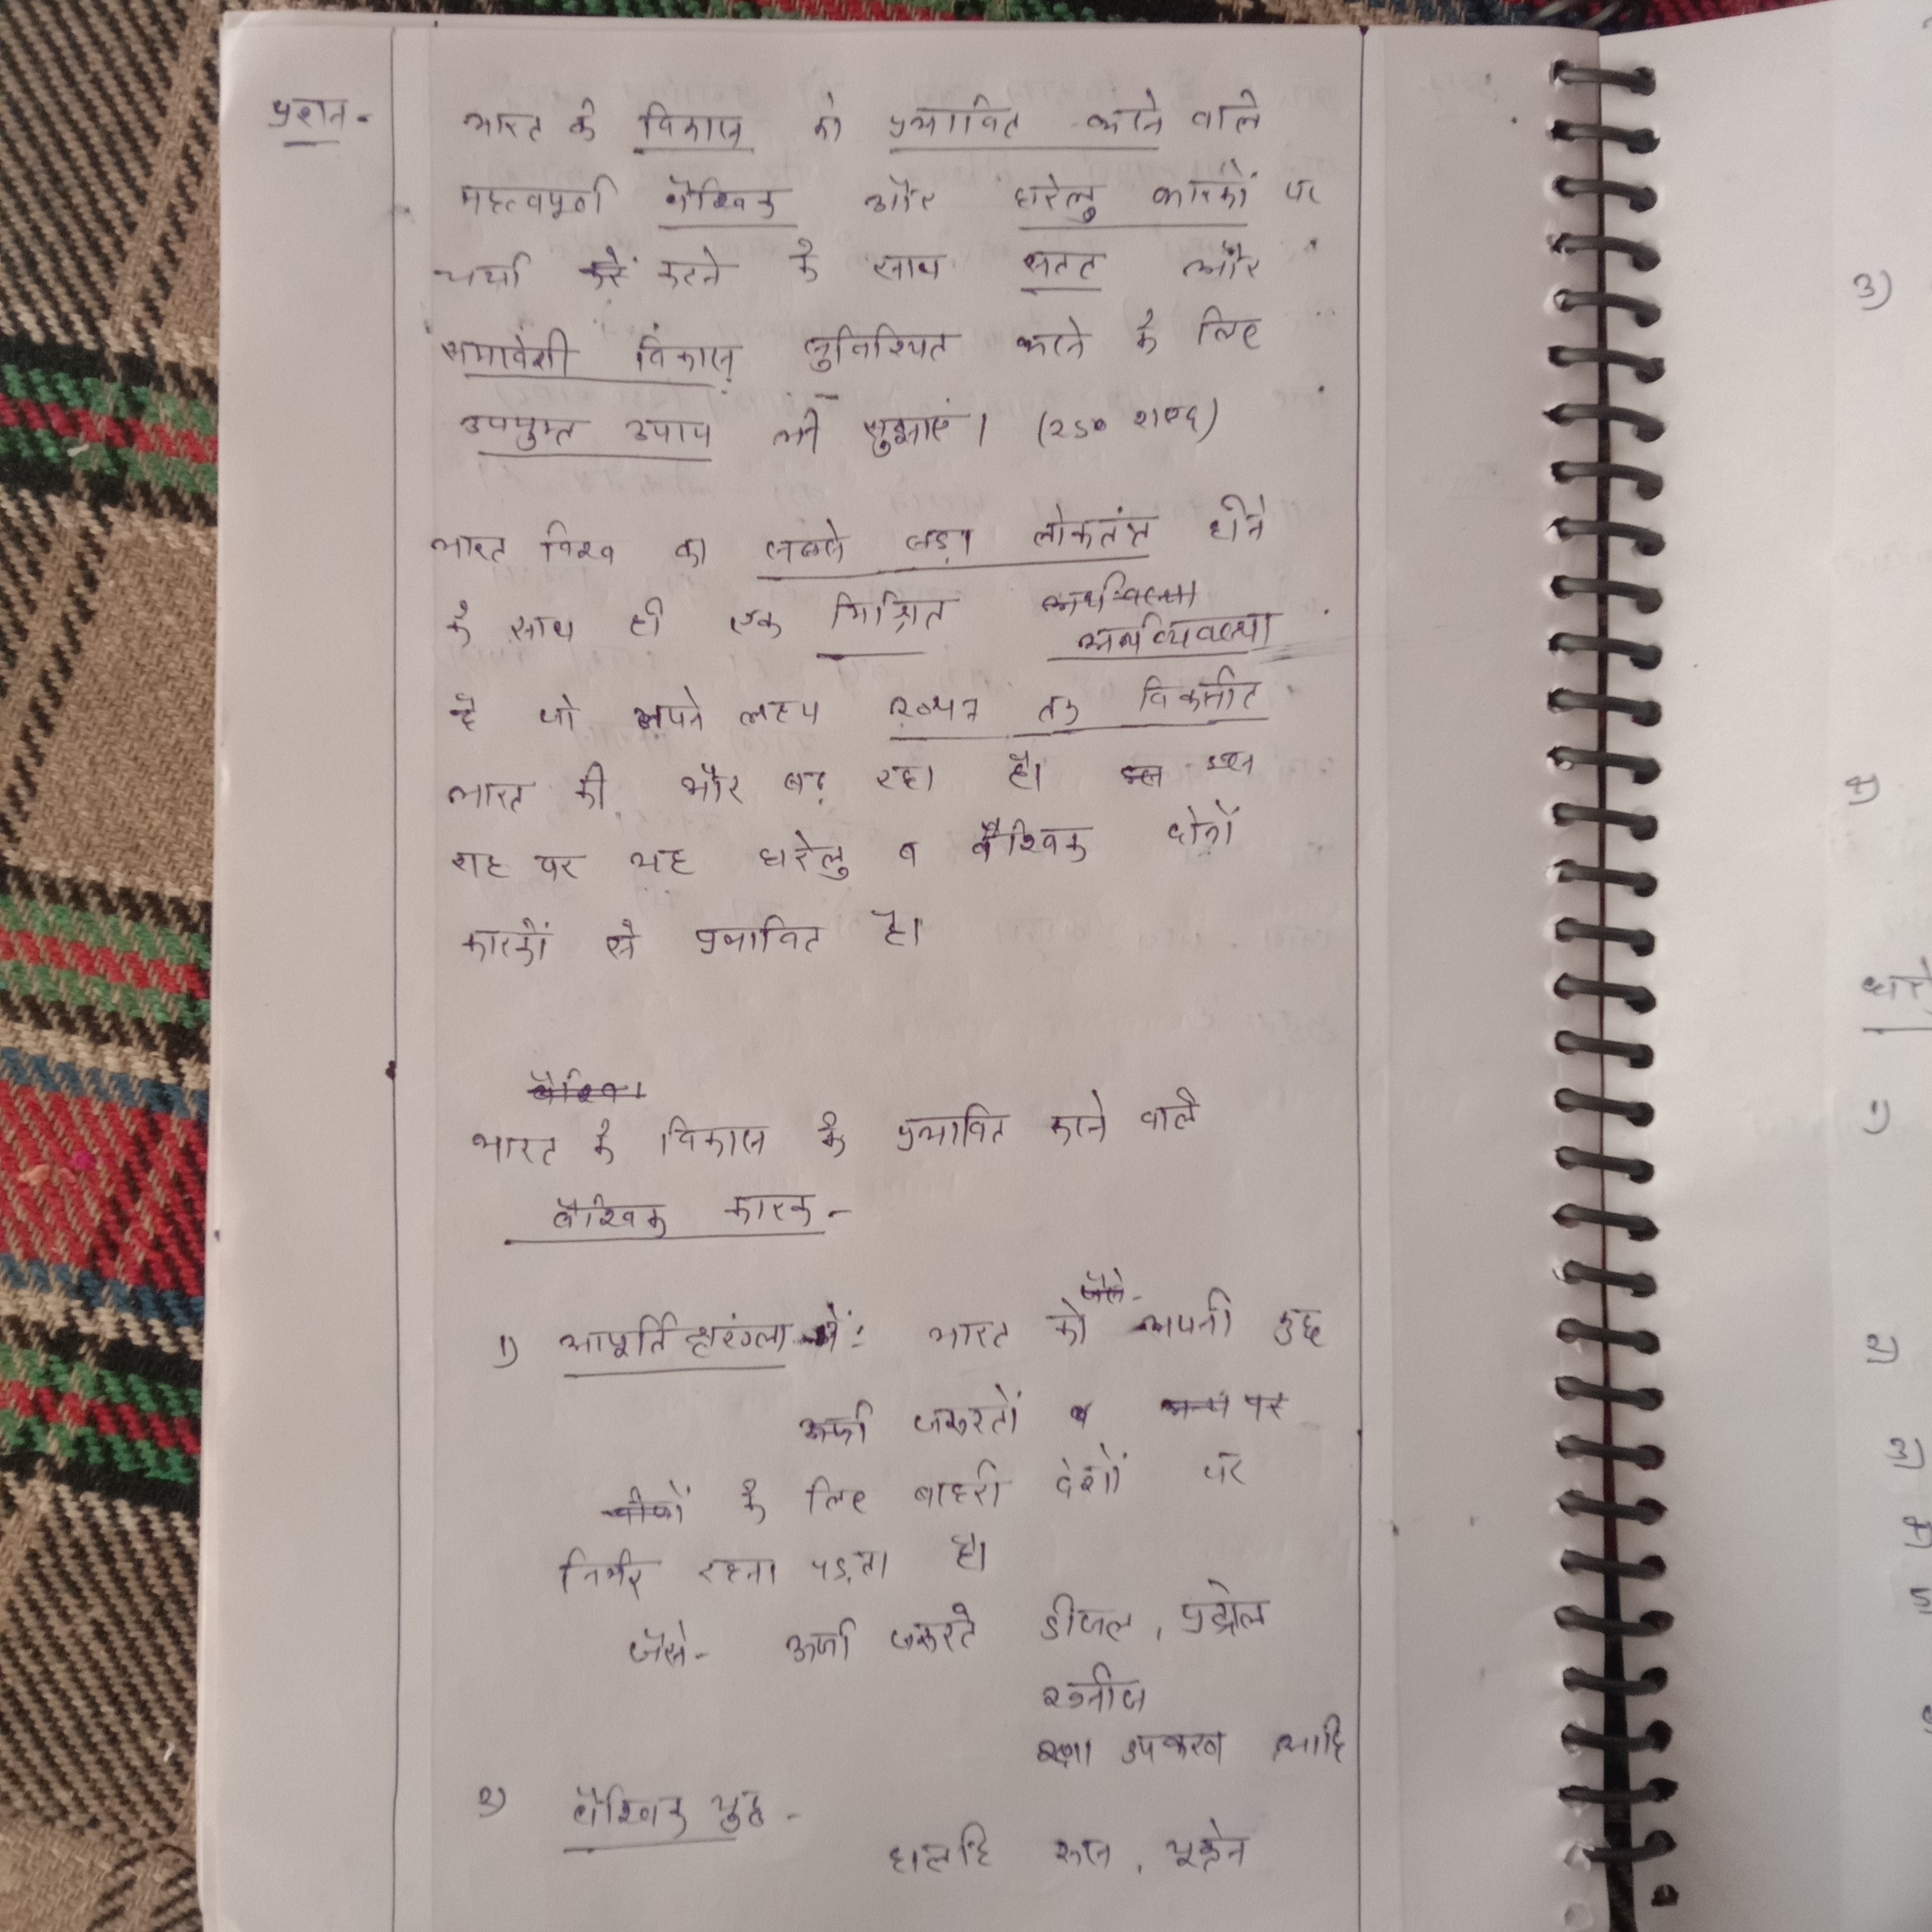 प्रश्न-
भारत के विकास को प्रभावित करने वाले
महत्वपूर्ण वैश्विक और घरेलु कारकों पर
चर्चा करें करने के साथ सतत और
समावेशी विकास सुनिश्चित करने के लिए
उपयुक्त उपाय भी सुझाएं। (250 शब्द)
भारत विश्व का सबसे बड़ा लोकतंत्र होने
के साथ ही एक मिश्रित
अर्थव्यवस्था
है जो अपने लक्ष्य २०४७ तक विकसीत
भारत की और बढ़ रहा है। इस इस
राह पर यह घरेलु व वैश्विक दोनों
कारकों से प्रभावित है।
वैश्विक
भारत के विकास के प्रभावित करने वाले
वैश्विक कारक-
1) आपूर्ति श्रृंखला में: भारत को जैसे- अपनी कुछ
ऊर्जा जरूरतों व पर
चीजों के लिए बाहरी देशों पर
निर्भर रहना पड़ता है।
जैसे- ऊर्जा जरूरते डीजल, पेट्रोल
खनीज
रक्षा उपकरण आदि
२) वैश्विक युद्ध-
हालहि रूस, यूक्रेन
3)
4)
घरे
1)
2)
3)
4)
5)